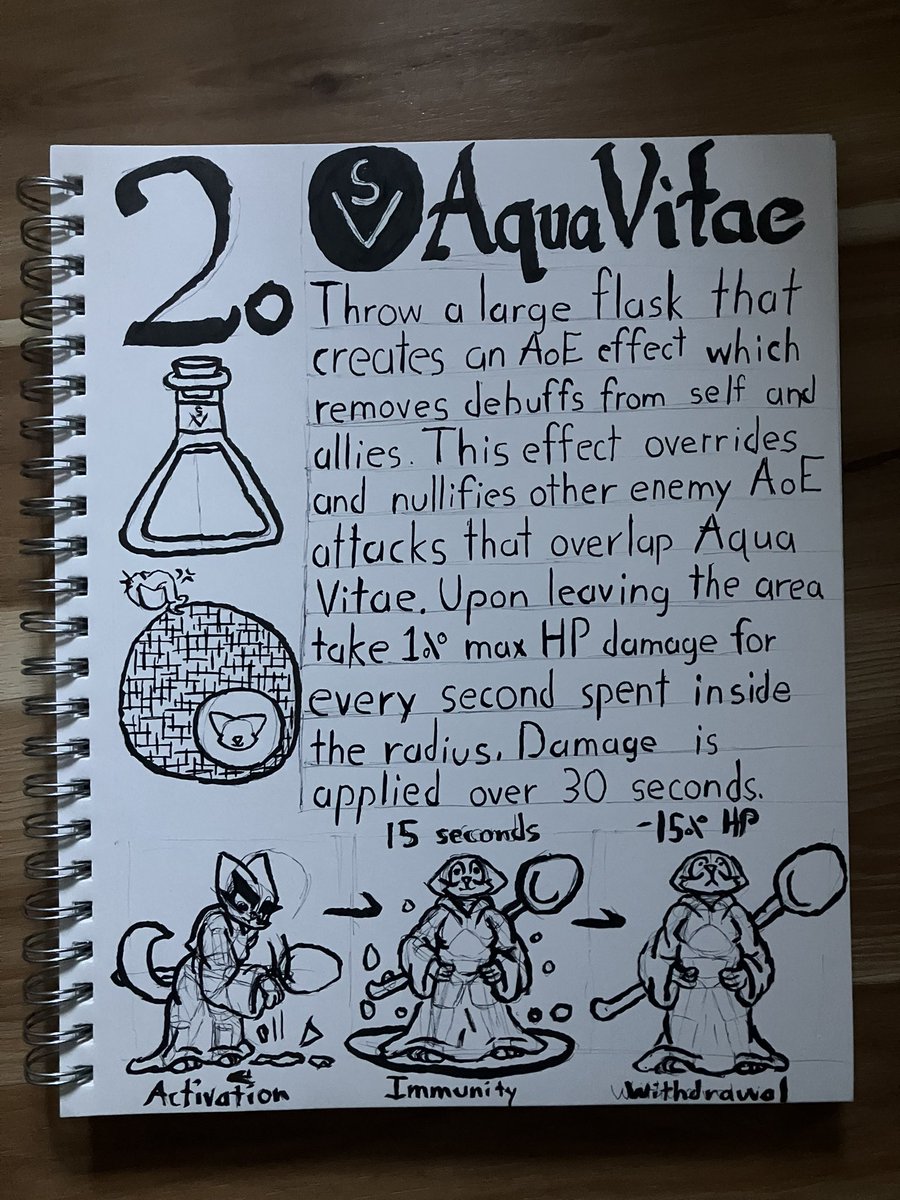 2.
SV
AquaVitae
Throw a large flask that
creates an AoE effect which
removes debuffs from self and
allies. This effect overrides
and nullifies other enemy AoE
attacks that overlap Aqua
Vitae. Upon leaving the area
take 1% max HP damage for
every second spent inside
the radius. Damage is
applied over 30 seconds.
SV
15 seconds
-15% HP
Activation
Immunity
Withdrawal